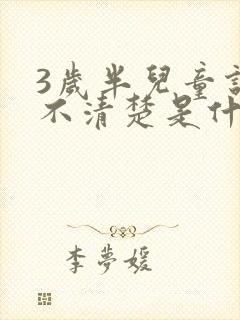 3歲半兒童
不清楚是什
李夢媛